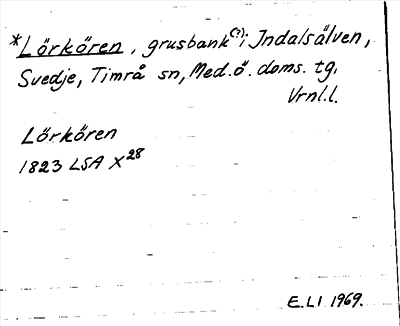 *Lörkören, grusbank(?) i Indalsälven,
Svedje, Timrå sn, Med.ö. doms. tg.
Vrnl.l.
Lörkören
1823 LSA X28
E.LI 1969.